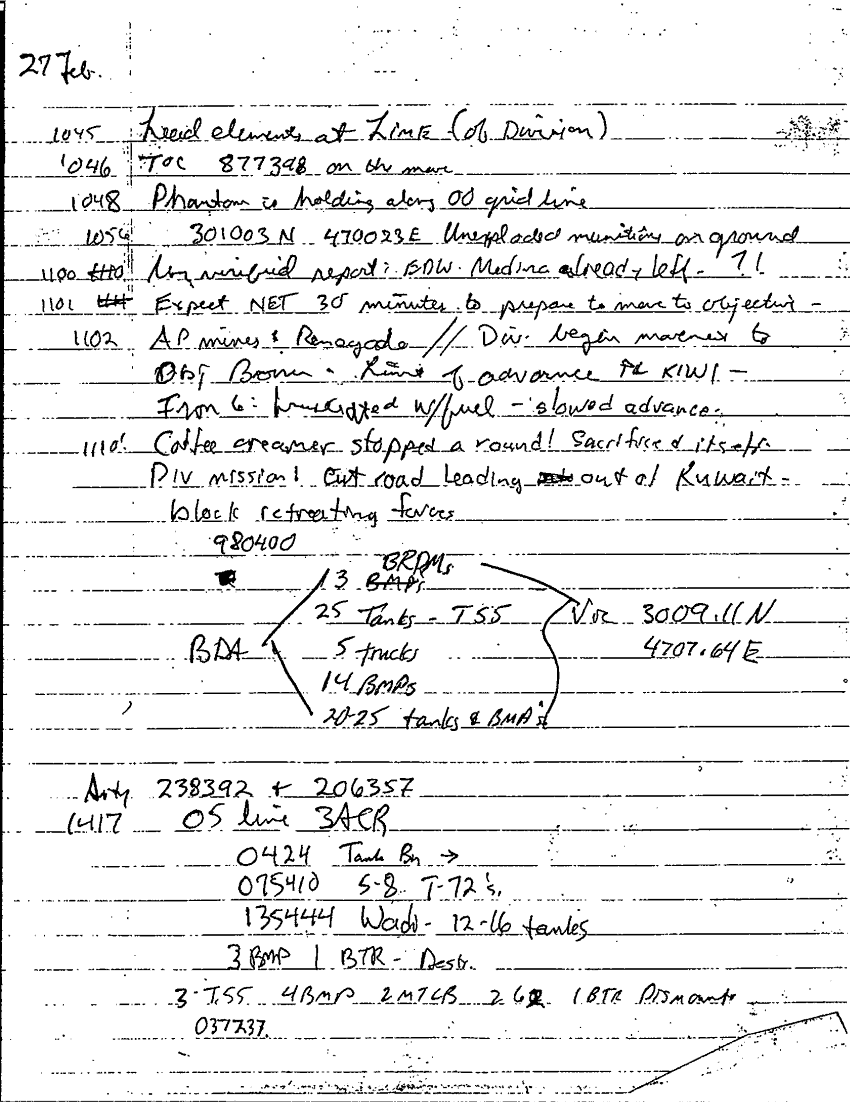 27 Feb.
1045 Lead elements at LIME (of Division)
1046 TOC 877398 on the move
1048 Phantom is holding along 00 grid line
1056 301003 N 470023 E Unexploded munitions on ground
1100 report: EPW. Medina already left - ?!
1101 Expect NET 30 minutes to prepare to move to objective -
1102 AP mines & Renegade // Div. begin movement to
Obj Brown - Limit of advance PL KIWI -
Iron 6: w/fuel - slowed advance.
1110 Coffee creamer stopped a round! Sacrificed itself.
Div mission! Cut road leading out of Kuwait -
block retreating forces
980400
BRDMs
13 BMPs
25 Tanks - T55 Vic 3009.11 N
BDA 5 trucks 4707.64 E
14 BMPs
20-25 tanks & BMP's
Arty 238392 + 206357
1417 05 line 3ACR
0424 Tank Bn →
075410 5-8 T-72's.
135444 Wadi - 12-16 tanks
3 BMP 1 BTR - Destr.
3 T55 4 BMP 2 MTLB 1 BTR Dismounts
037237